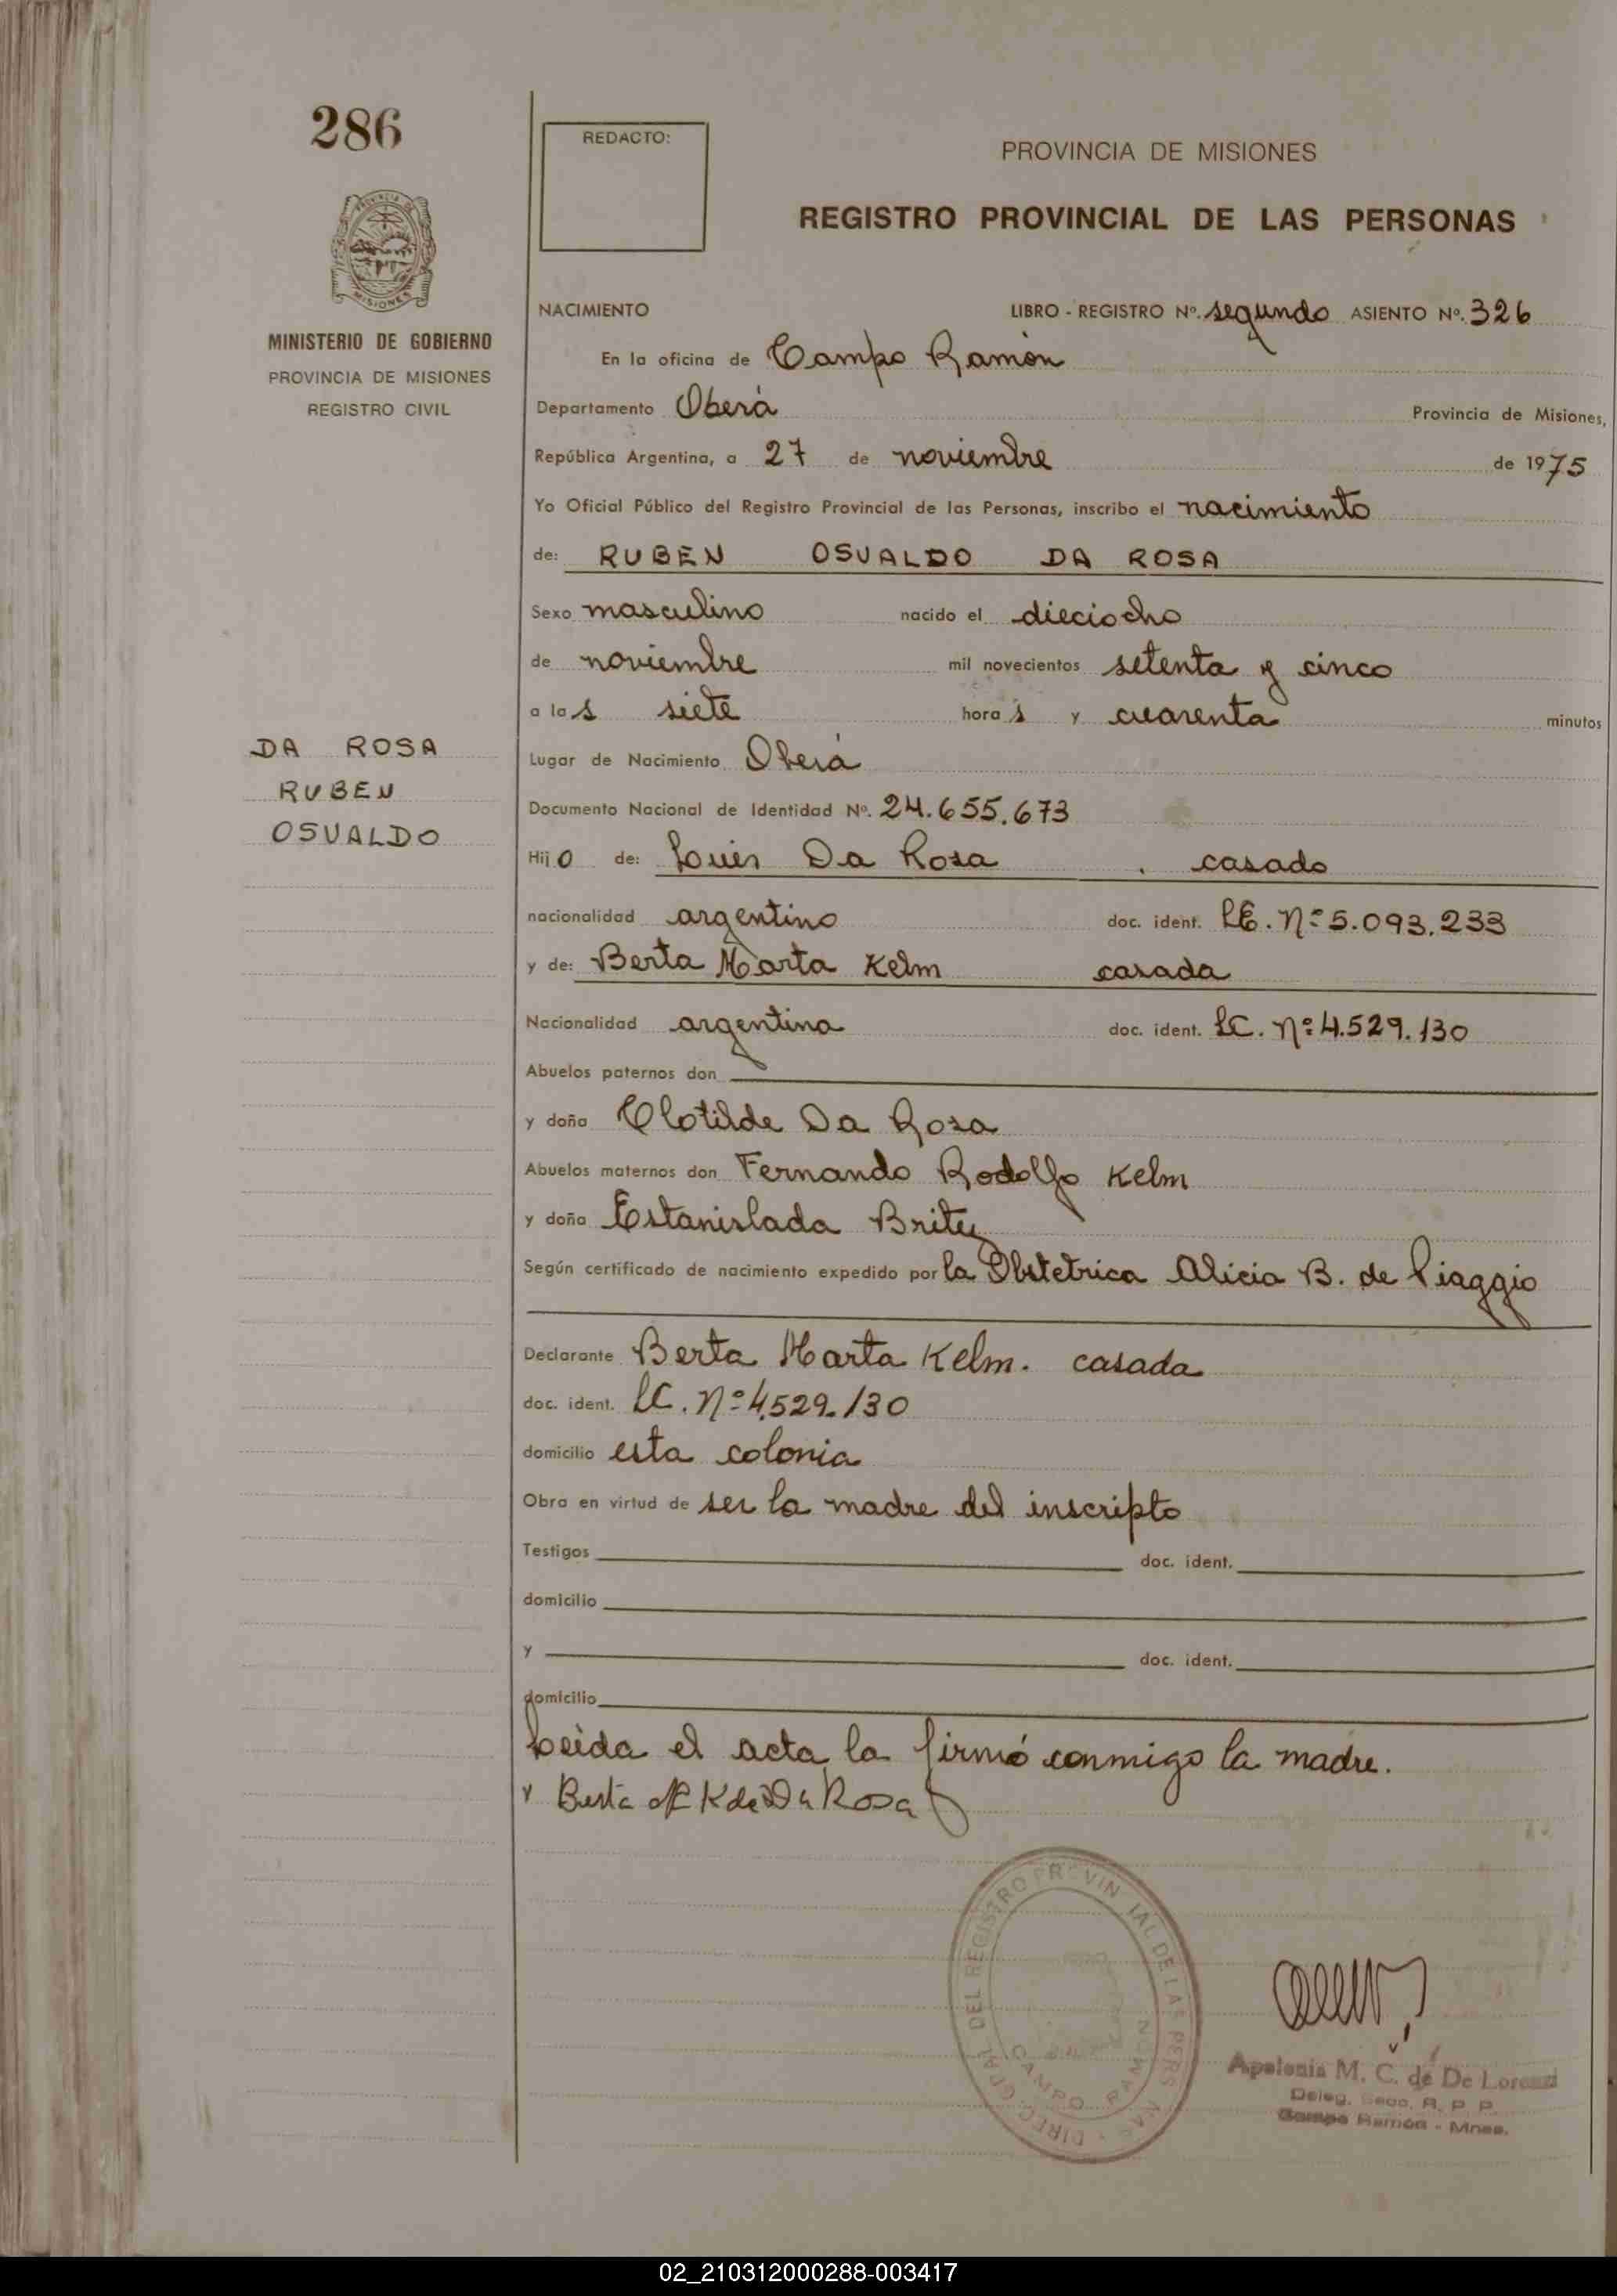 286
REDACTO:
PROVINCIA DE MISIONES
REGISTRO PROVINCIAL DE LAS PERSONAS
MISIONES
MINISTERIO DE GOBIERNO
PROVINCIA DE MISIONES
REGISTRO CIVIL
NACIMIENTO LIBRO - REGISTRO Nº. segundo ASIENTO Nº. 326
En la oficina de Campo Ramón
Departamento Oberá Provincia de Misiones,
República Argentina, a 27 de noviembre de 1975
Yo Oficial Público del Registro Provincial de las Personas, inscribo el nacimiento
de: RUBEN OSVALDO DA ROSA
Sexo masculino nacido el dieciocho
de noviembre mil novecientos setenta y cinco
a las siete horas y cuarenta minutos
DA ROSA
RUBEN
OSVALDO
Lugar de Nacimiento Oberá
Documento Nacional de Identidad Nº. 24.655.673
Hijo de: Luis Da Rosa . casado
nacionalidad argentino doc. ident. LE. Nº 5.093.233
y de: Berta Marta Kelm casada
Nacionalidad argentina doc. ident. LC. Nº 4.529.130
Abuelos paternos don
y doña Clotilde Da Rosa
Abuelos maternos don Fernando Rodolfo Kelm
y doña Estanislada Britez
Según certificado de nacimiento expedido por la Obstetrica Alicia B. de Piaggio
Declarante Berta Marta Kelm. casada
doc. ident. LC. Nº 4.529.130
domicilio esta colonia
Obra en virtud de ser la madre del inscripto
Testigos doc. ident.
domicilio
y doc. ident.
domicilio
Leída el acta la firmó conmigo la madre.
Berta K de Da Rosa
DIREC. GRAL. DEL REGISTRO PROVINCIAL DE LAS PERSONAS
CAMPO RAMON
Apolonia M. C. de De Lorenzi
Deleg. Secc. R. P. P.
Campo Ramón - Mnes.
02_210312000288-003417